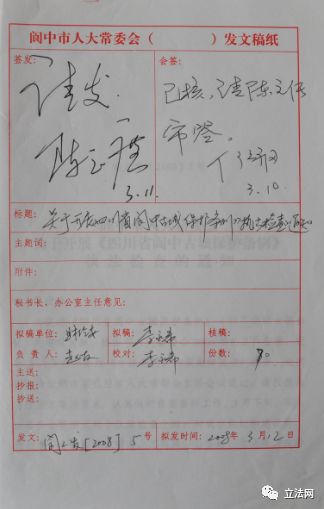 阆中市人大常委会（　　　）发文稿纸
签发：
请发。
3.11.
会签：
已核，请陈主任
审签。
3.10.
标题：关于开展四川省阆中古城保护条例执法检查的通知
主题词：
附件：
秘书长、办公室主任意见：
拟稿单位： 拟稿： 李 核稿：
负责人： 校对： 李 份数：
主送：
抄报：
抄送：
发文：阆人发[2008] 5号 拟发时间：2008年3月12日
立法网